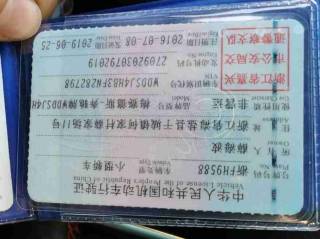 中华人民共和国机动车行驶证
Vehicle License of the People's Republic of China
号牌号码 浙FH9588 车辆类型 小型轿车
Plate No. Vehicle Type
所有人
Owner
住址 浙江省海盐县于城镇何家村薛家场11号
Address
使用性质 非营运 品牌型号 梅赛德斯-奔驰WDDSJ4H
Use Character Model
浙江省嘉兴
市公安局交
通警察支队
车辆识别代号 WDDSJ4HB3FN282798
VIN
发动机号码 27092030792019
Engine No.
注册日期 2016-07-08 发证日期 2019-06-25
Register Date Issue Date